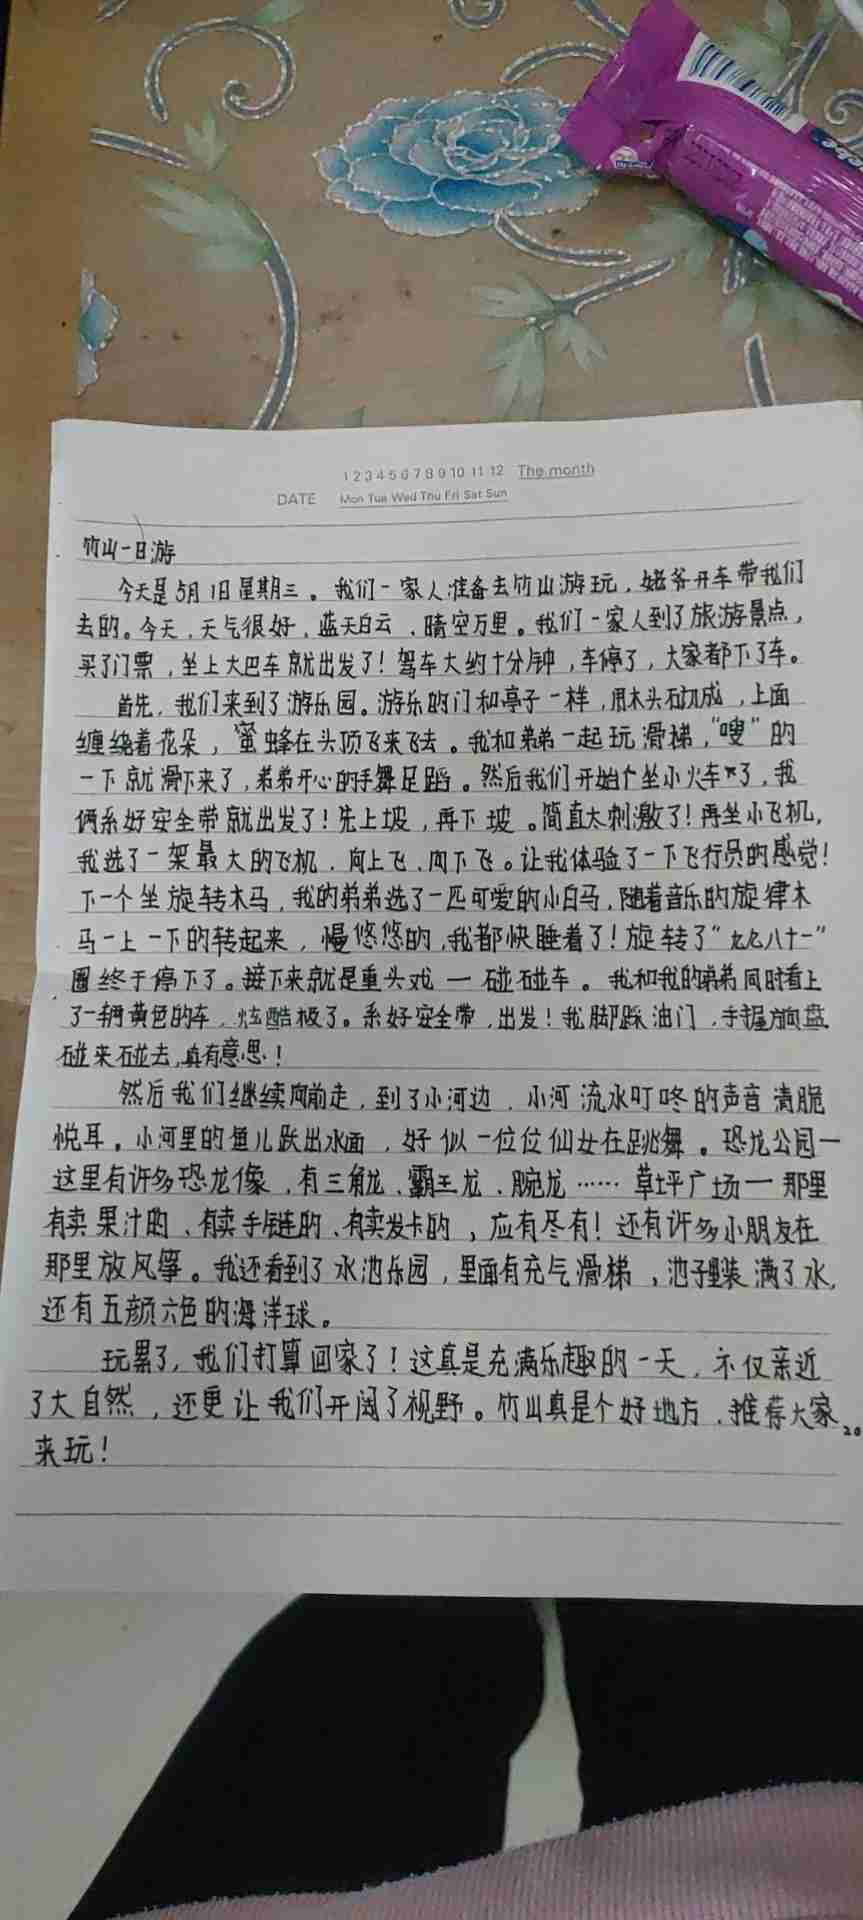 1 2 3 4 5 6 7 8 9 10 11 12 The month
DATE Mon Tue Wed Thu Fri Sat Sun
竹山一日游
今天是5月1日星期三。我们一家人准备去竹山游玩，姥爷开车带我们
去的。今天，天气很好，蓝天白云，晴空万里。我们一家人到了旅游景点，
买了门票，坐上大巴车就出发了！驾车大约十分钟，车停了，大家都下了车。
首先，我们来到了游乐园。游乐的门和亭子一样，用木头砌成，上面
缠绕着花朵，蜜蜂在头顶飞来飞去。我和弟弟一起玩滑梯，“嗖”的
一下就滑下来了，弟弟开心的手舞足蹈。然后我们开始坐小火车了，我
俩系好安全带就出发了！先上坡，再下坡。简直太刺激了！再坐小飞机，
我选了一架最大的飞机，向上飞、向下飞。让我体验了一下飞行员的感觉！
下一个坐旋转木马，我的弟弟选了一匹可爱的小白马，随着音乐的旋律木
马一上一下的转起来，慢悠悠的，我都快睡着了！旋转了“九九八十一”
圈终于停下了。接下来就是重头戏一碰碰车。我和我的弟弟同时看上
了一辆黄色的车，炫酷极了。系好安全带，出发！我脚踩油门，手握方向盘
碰来碰去，真有意思！
然后我们继续向前走，到了小河边，小河流水叮咚的声音清脆
悦耳。小河里的鱼儿跃出水面，好似一位位仙女在跳舞。恐龙公园一
这里有许多恐龙像，有三角龙、霸王龙、腕龙……草坪广场一那里
有卖果汁的、有卖手链的、有卖发卡的，应有尽有！还有许多小朋友在
那里放风筝。我还看到了水池乐园，里面有充气滑梯，池子里装满了水，
还有五颜六色的海洋球。
玩累了，我们打算回家了！这真是充满乐趣的一天，不仅亲近
了大自然，还更让我们开阔了视野。竹山真是个好地方，推荐大家
来玩！
20